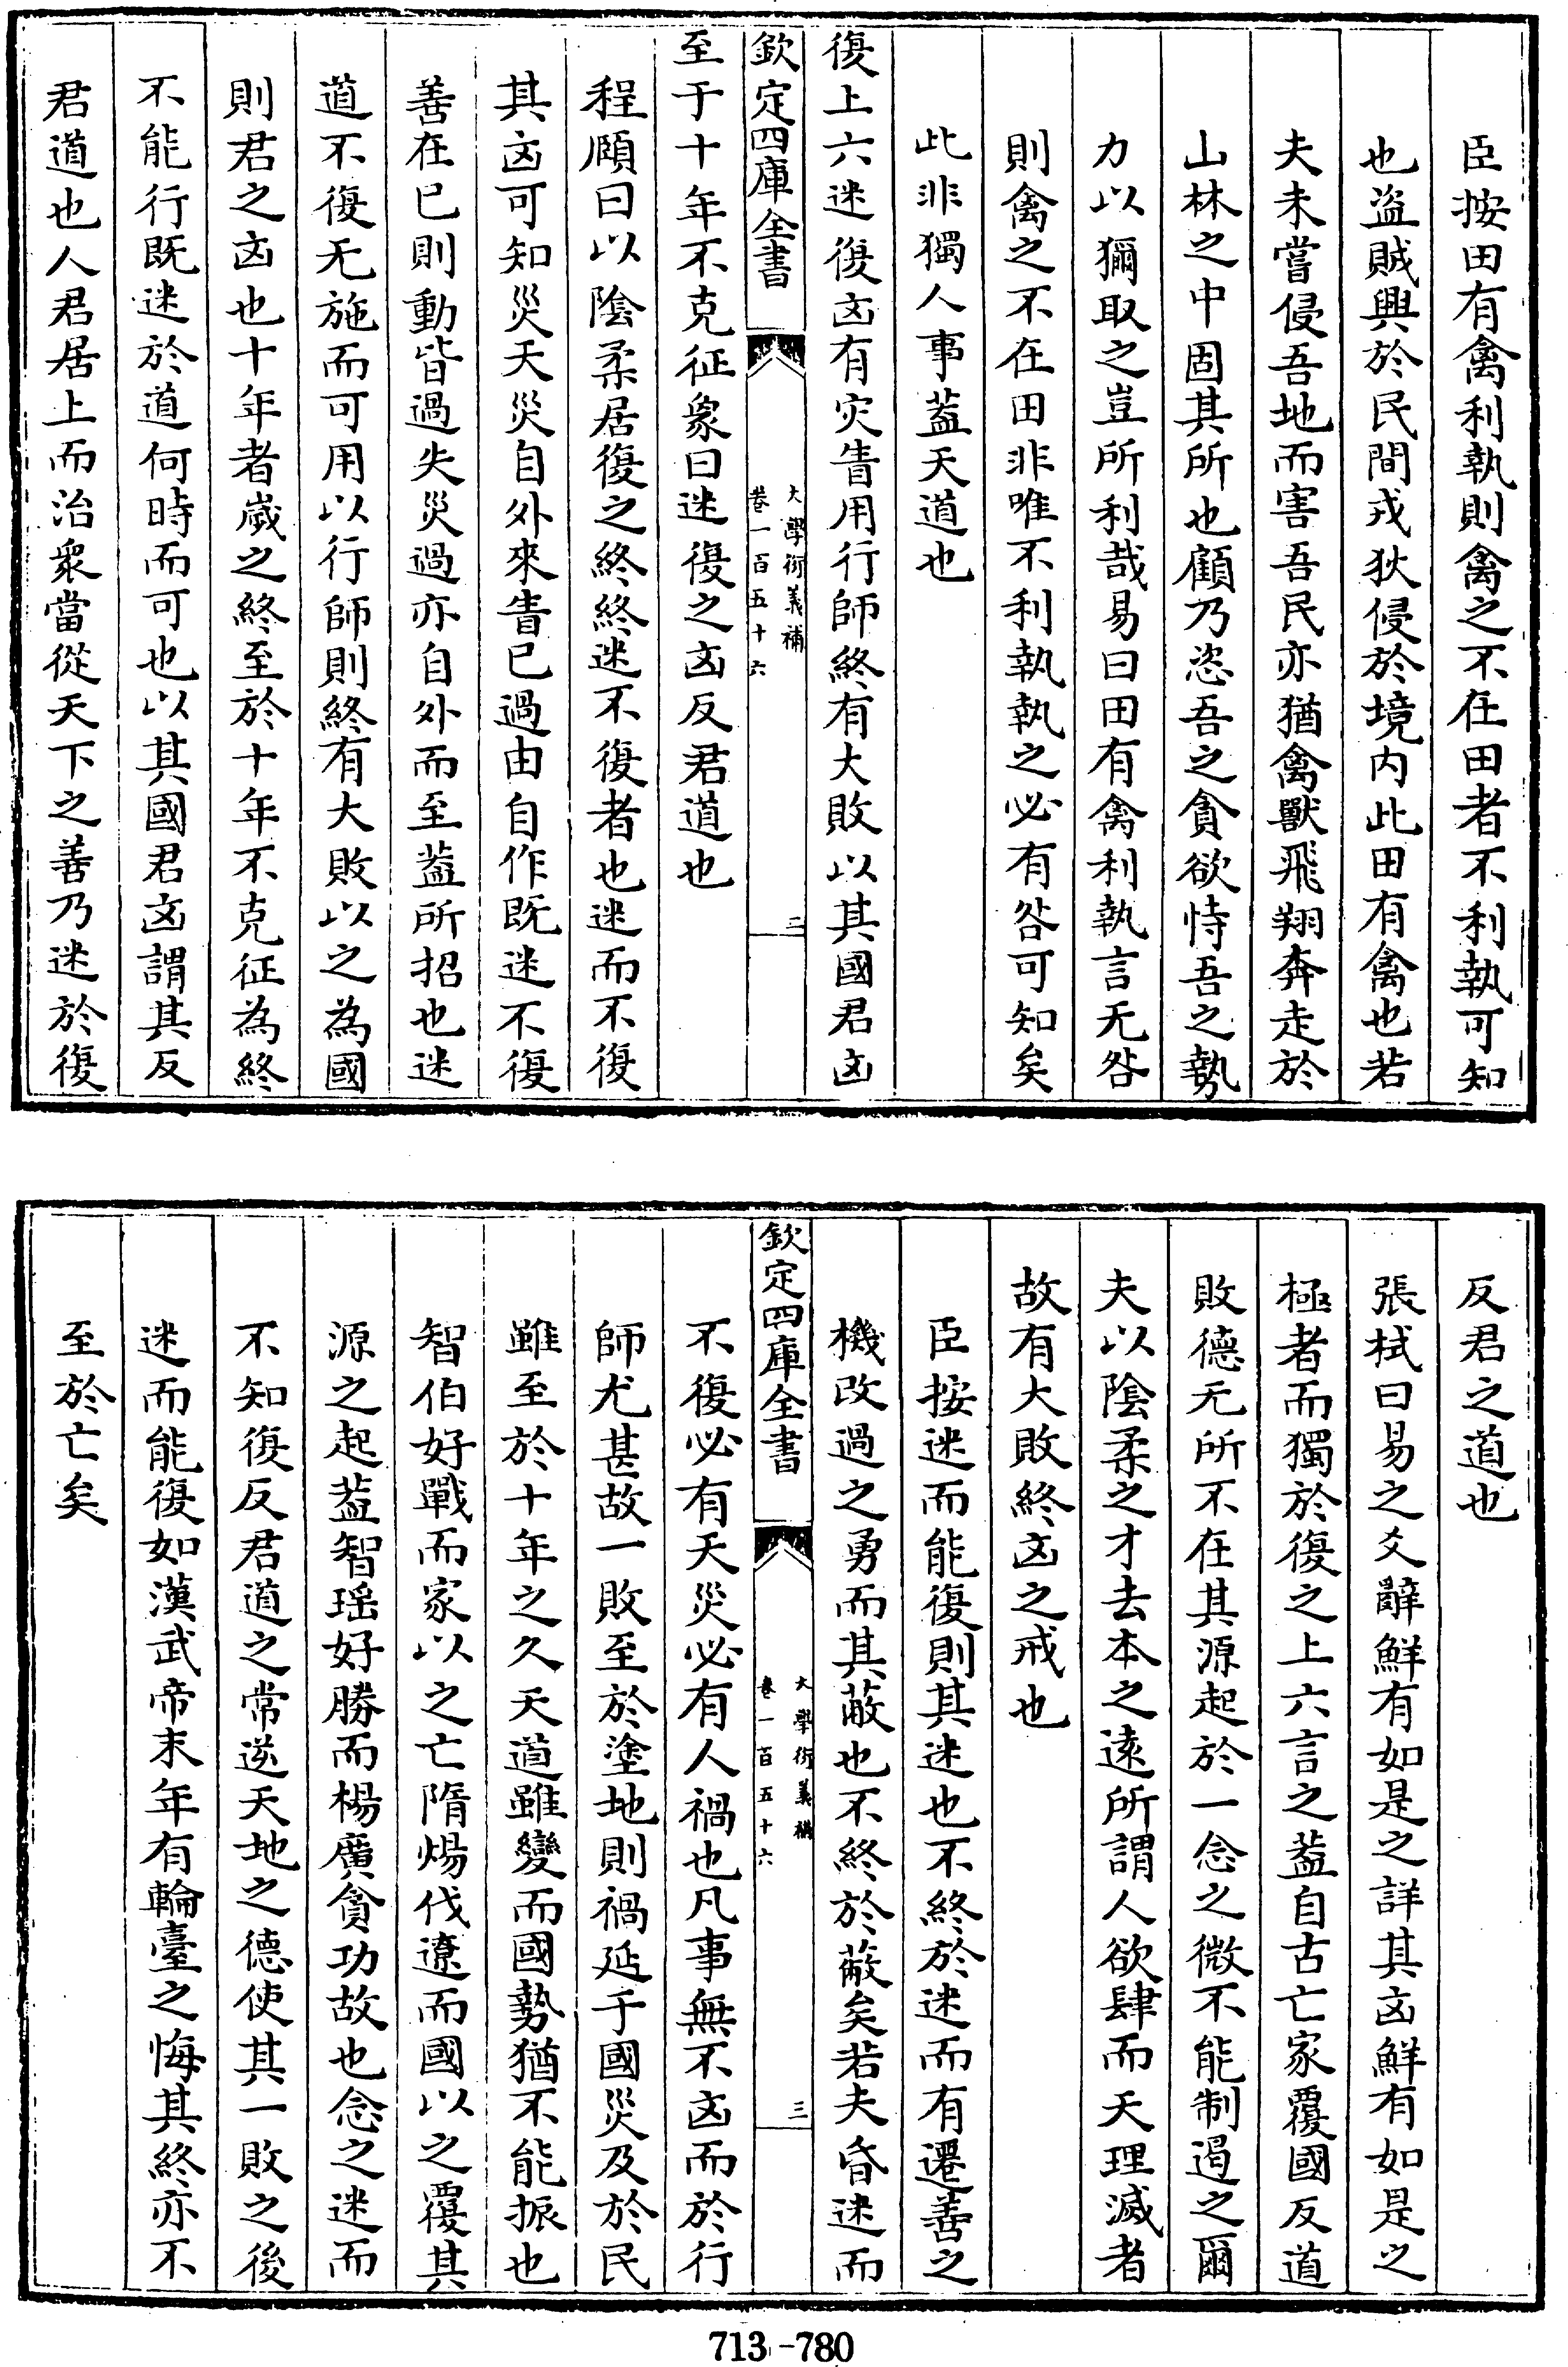 臣按田有禽利執則禽之不在田者不利執可知
也盗賊興於民間戎狄侵於境内此田有禽也若
夫未嘗侵吾地而害吾民亦猶禽獸飛翔奔走於
山林之中固其所也顧乃恣吾之貪欲恃吾之勢
力以獮取之豈所利哉易曰田有禽利執言无咎
則禽之不在田非唯不利執執之必有咎可知矣
此非獨人事葢天道也
復上六迷復凶有灾眚用行師終有大敗以其國君凶
欽定四庫全書
大學衍義補
卷一百五十六
三
至于十年不克征象曰迷復之凶反君道也
程頤曰以陰柔居復之終終迷不復者也迷而不復
其凶可知災天災自外來眚已過由自作既迷不復
善在已則動皆過失災過亦自外而至葢所招也迷
道不復无施而可用以行師則終有大敗以之為國
則君之凶也十年者嵗之終至於十年不克征為終
不能行既迷於道何時而可也以其國君凶謂其反
君道也人君居上而治衆當從天下之善乃迷於復
反君之道也
張栻曰易之爻辭鮮有如是之詳其凶鮮有如是之
極者而獨於復之上六言之葢自古亡家覆國反道
敗德无所不在其源起於一念之微不能制遏之爾
夫以陰柔之才去本之逺所謂人欲肆而天理滅者
故有大敗終凶之戒也
臣按迷而能復則其迷也不終於迷而有遷善之
機改過之勇而其蔽也不終於蔽矣若夫昏迷而
欽定四庫全書
大學衍義補
卷一百五十六
三
不復必有天災必有人禍也凡事無不凶而於行
師尤甚故一敗至於塗地則禍延于國災及於民
雖至於十年之久天道雖變而國勢猶不能振也
智伯好戰而家以之亡隋煬伐遼而國以之覆其
源之起葢智瑶好勝而楊廣貪功故也念之迷而
不知復反君道之常逆天地之德使其一敗之後
迷而能復如漢武帝末年有輪臺之悔其終亦不
至於亡矣
713-780